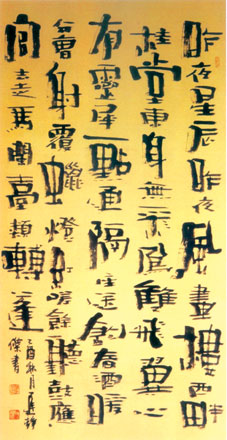 昨夜星辰昨夜風畫樓西畔
桂堂東身無彩鳳雙飛翼心
有靈犀一點通隔座送鉤春酒暖
分曹射覆蠟燈紅嗟餘聽鼓應
官去走馬蘭臺類轉蓬
乙酉秋月
傑書